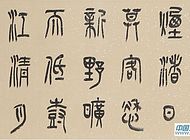 煙渚日
莫客愁
新野曠
天低樹
江清月
中国